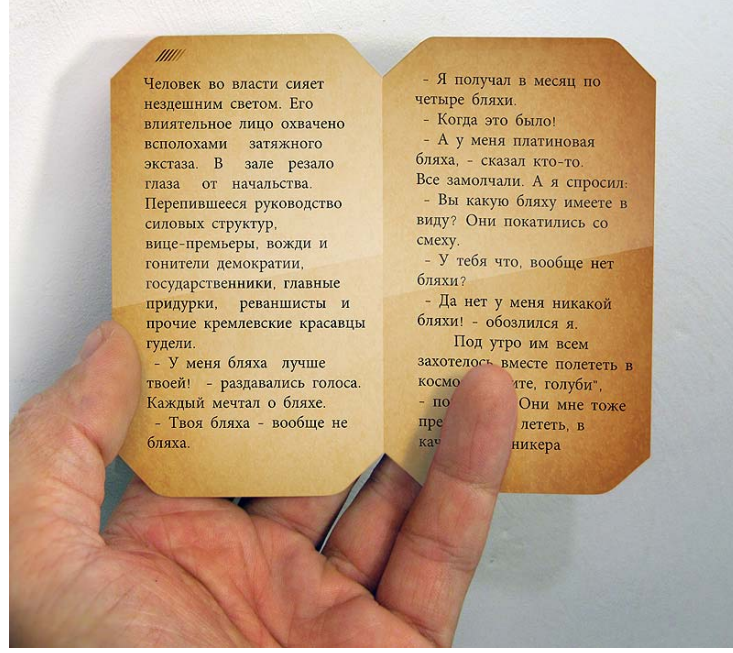 Человек во власти сияет
нездешним светом. Его
влиятельное лицо охвачено
всполохами затяжного
экстаза. В зале резало
глаза от начальства.
Перепившееся руководство
силовых структур,
вице-премьеры, вожди и
гонители демократии,
государственники, главные
придурки, реваншисты и
прочие кремлевские красавцы
гудели.
- У меня бляха лучше
твоей! - раздавались голоса.
Каждый мечтал о бляхе.
- Твоя бляха - вообще не
бляха.
- Я получал в месяц по
четыре бляхи.
- Когда это было!
- А у меня платиновая
бляха, - сказал кто-то.
Все замолчали. А я спросил:
- Вы какую бляху имеете в
виду? Они покатились со
смеху.
- У тебя что, вообще нет
бляхи?
- Да нет у меня никакой
бляхи! - обозлился я.
Под утро им всем
захотелось вместе полететь в
голуби",
Они мне тоже
лететь, в